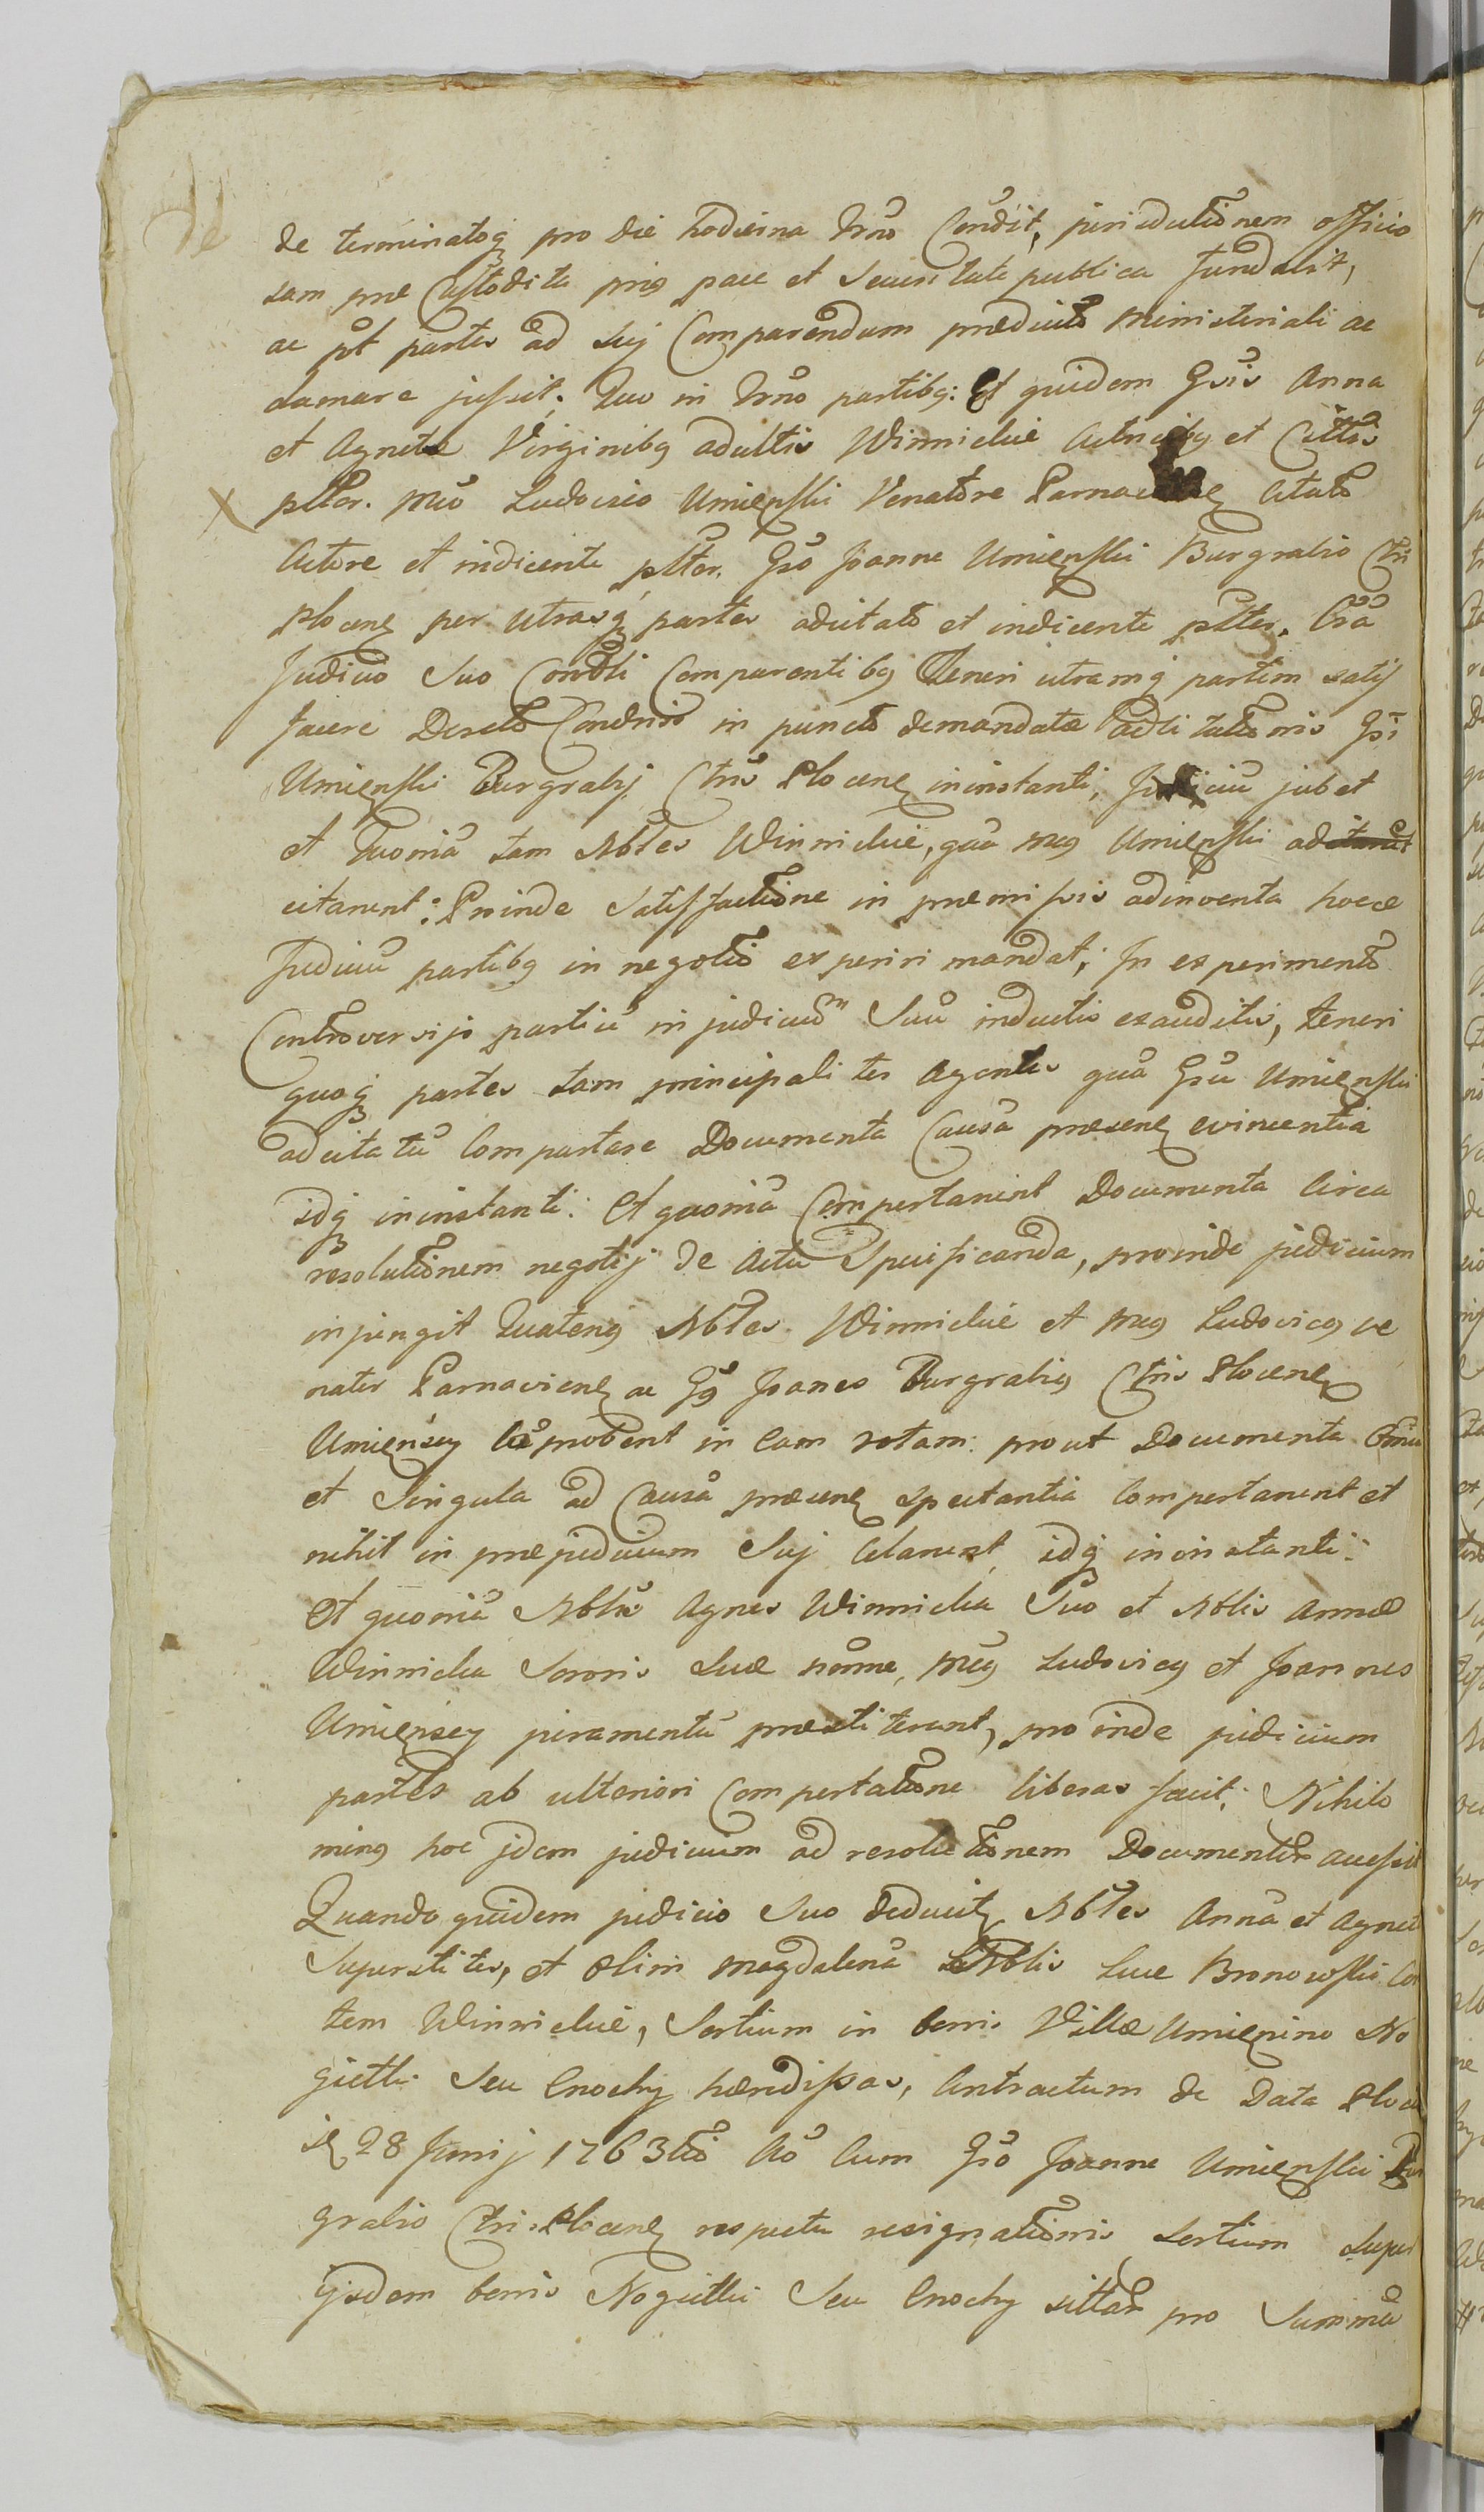 de terminatoq pro die hodierna Trno Condit, jurisdictionem officio
sam prae Custodita prius pace et Securitate publica fundavit,
ac pt partes ad Sui Comparendum praedicto Ministeriali ac
clamare jussit. Quo in Trno partibq: Et quidem Gsis Anna
et Agnete Virginibq adultis Winnickie Actricibq et Cittis
pltter. Mco Ludovico Umięnski Venatore Parnaviens Citato
Actore et indicente pltter. Gso Joanne Umięnski Burgrabio Ctri
Plocens per Utrasq partes adcitato et indicente pltter. Cra
Judicio Suo Condli Comparentibq Teneri utramq partem satis
facere Decreto Condniss in puncto demandatae adcitationis Gsi
Umięnski Burgrabij Ctris Plocens in instanti, Judiciu jubet
et Quoniã tam Nbles Winnickie, quã Mcus Umięnski ad
citarunt: Proinde Satisfactione in praemissis adinventa hocce
Judiciũ partibq in negotio experiri mandat; In experimento
Controversijs partiũ in judiciũ Suũ inductis exauditis, teneri
quaq partes tam principaliter Agentes quã Gsũ Umięnski
adcitatũ Comportare Documenta Causã praesens evincentia
idq in instanti. Et quoniã Comportarunt Documenta Circa
resolutionem negotij de Actu Specificanda, proinde judicium
injungit Quatenq Nbles Winnickie et Mcus Ludovicq ve
nator Parnaviens ac Gsq Joanes Burgrabiq Ctris Plocens
Umięnscy Coprobent in eam rotam: prout Documenta Omnia
et Singula ad Causã praesens Spectantia Comportarunt et
nihil in praejudicium Suj Celarunt, idq in instanti:
Et quoniã Nblis Agnes Winnicka Suo et Nblis Annae
Winnicka Sororis Suae nomine, Mcus Ludovicq et Joannes
Umięnscy juramentũ praestiterunt, pro inde judicium
partes ab ulteriori Comportatione liberas facit; Nihilo
minq hoc jdem judicium ad resolutionem Documentor accessit
Quando quidem judicio Suo deducit, Nbles Anna et Agnet
Superstites, et Olim Magdalenã Nblis Luce Bronowski Con
tem Winnickie, Sortium in bonis Villae Umięnino No
gietki Seu Enochy haeredissas, Contractum de Data Ploc
is 28 Junij 1763tio Ao Cum Gso Joanne Umięnski Bur
grabio Ctri. Plocens respectu resignationis Sortium Super
ijsdem bonis Nogietki Seu Enochy sittar pro Summa